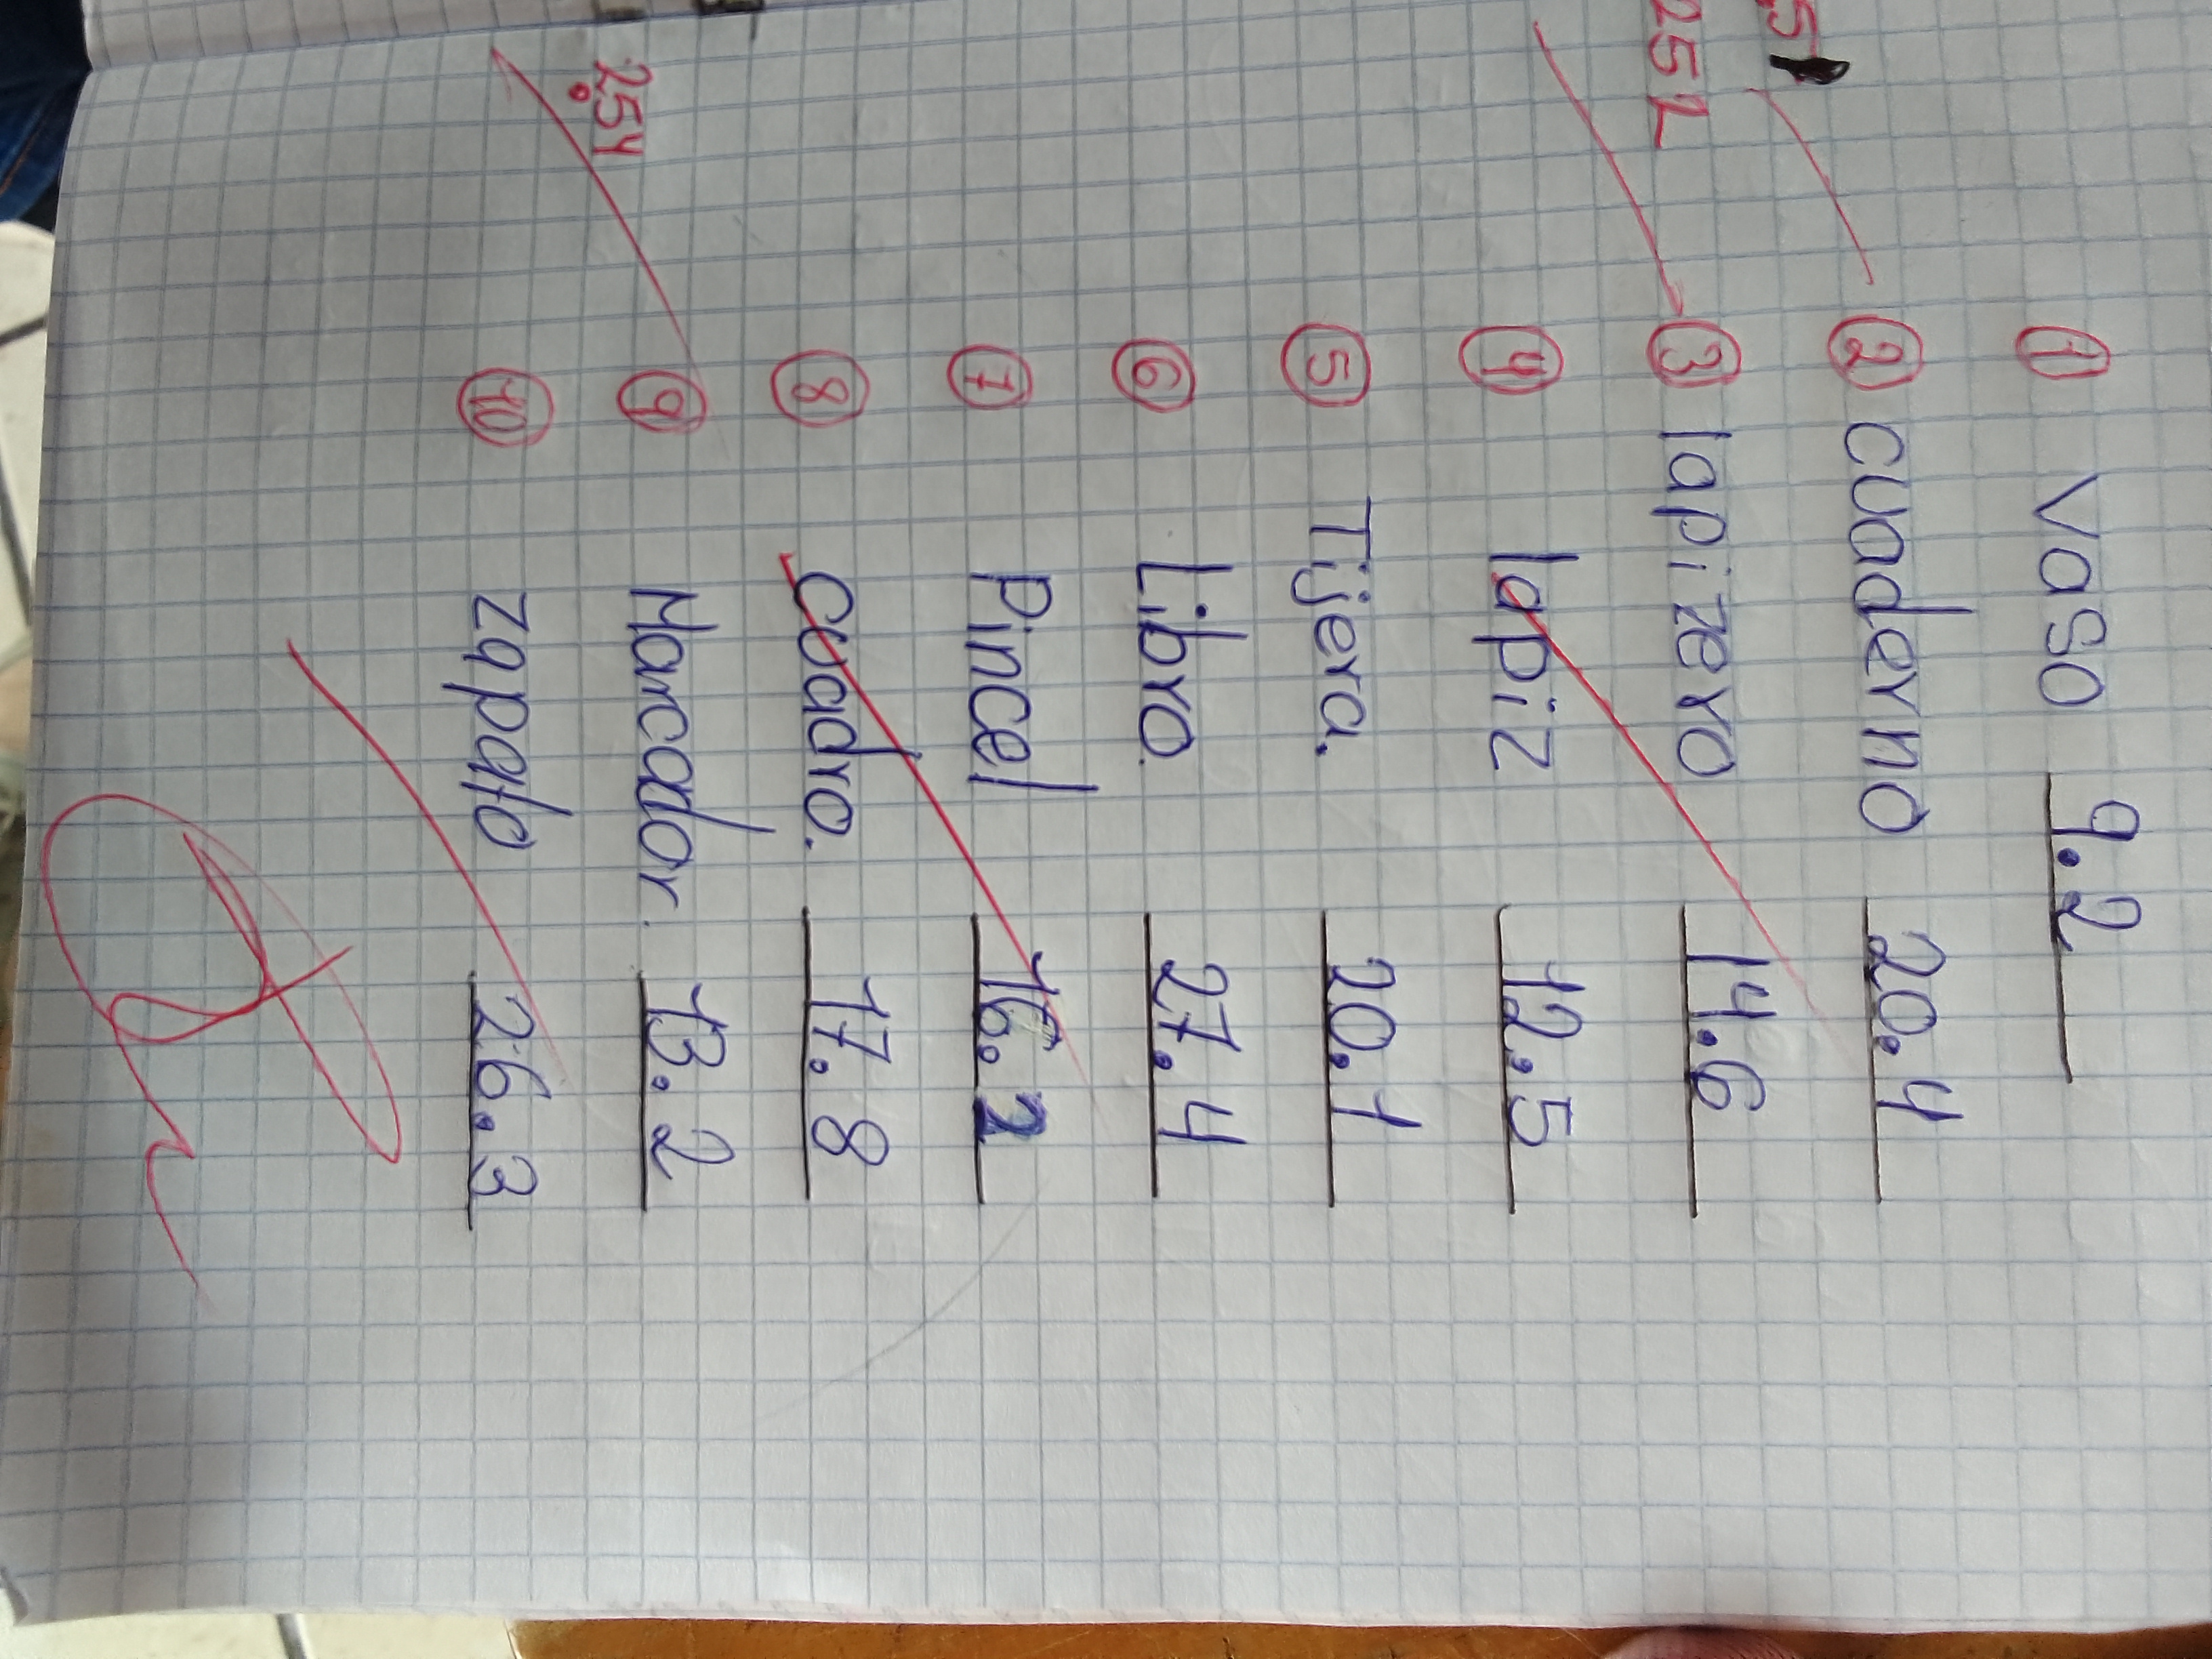 251
① Vaso 9.2
② cuaderno 20.4
③ lapizero 14.6
④ lapiz 12.5
⑤ Tijera. 20.1
⑥ Libro. 27.4
⑦ Pincel 16.2
⑧ Cuadro. 17.8
2.54
⑨ Marcador. 13.2
⑩ zapato 26.3